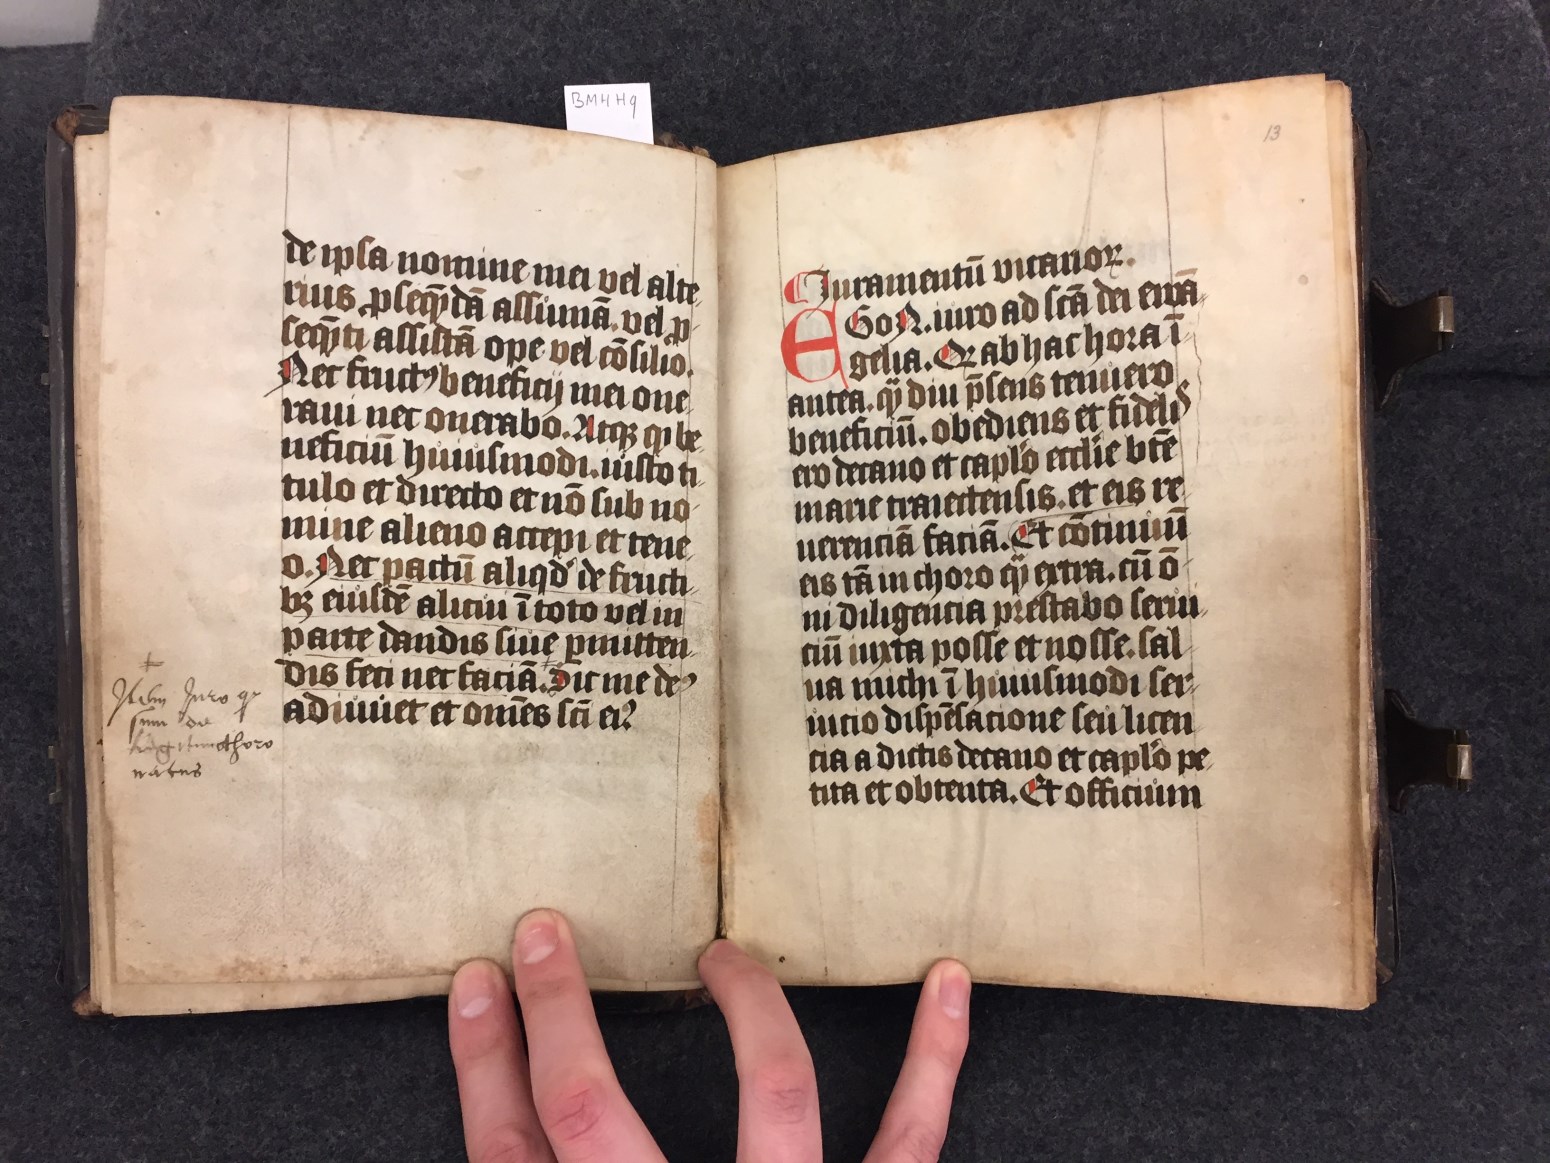 BMH H9
de ipsa nomine mei vel alte
rius ꝓseqͣdā assumā. vel ꝓ
seqͣti assistā ope vel cōsilio.
Nec fructꝰ beneficij mei one
raui nec onerabo. Atqꝫ qꝫ be
neficiū huiusmodi. iusto ti
tulo et directo et nō sub no
mine alieno accepi et tene
o. Nec pactū aliqd' de fructi
bꝫ eiusdē alicui ī toto vel in
parte dandis siue ꝑmitten
dis feci nec faciā. Sic me deꝰ
adiuuet et om̄es sc̄i eiꝰ
Itim Juro qꝫ
sum de
legitimo thoro
natus
13
Juramentū vicarioꝝ.
EGo N. iuro ad sc̄a dei ewā
gelia. Qꝫ ab hac hora ī
antea. qͣ diu p̄sens tenuero
beneficiū. obediens et fidelis
ero decano et caplo ecclīe btē
marie traiectensis. et eis re
uerenciā faciā. Et cōtinuū
eis tā in choro qͣ extra. cū ō
ni diligencia prestabo serui
ciū iuxta posse et nosse. sal
ua michi ī huiusmodi ser
uicio dispēsacione seu licen
cia a dictis decano et caplo pe
tita et obtenta. Et officium